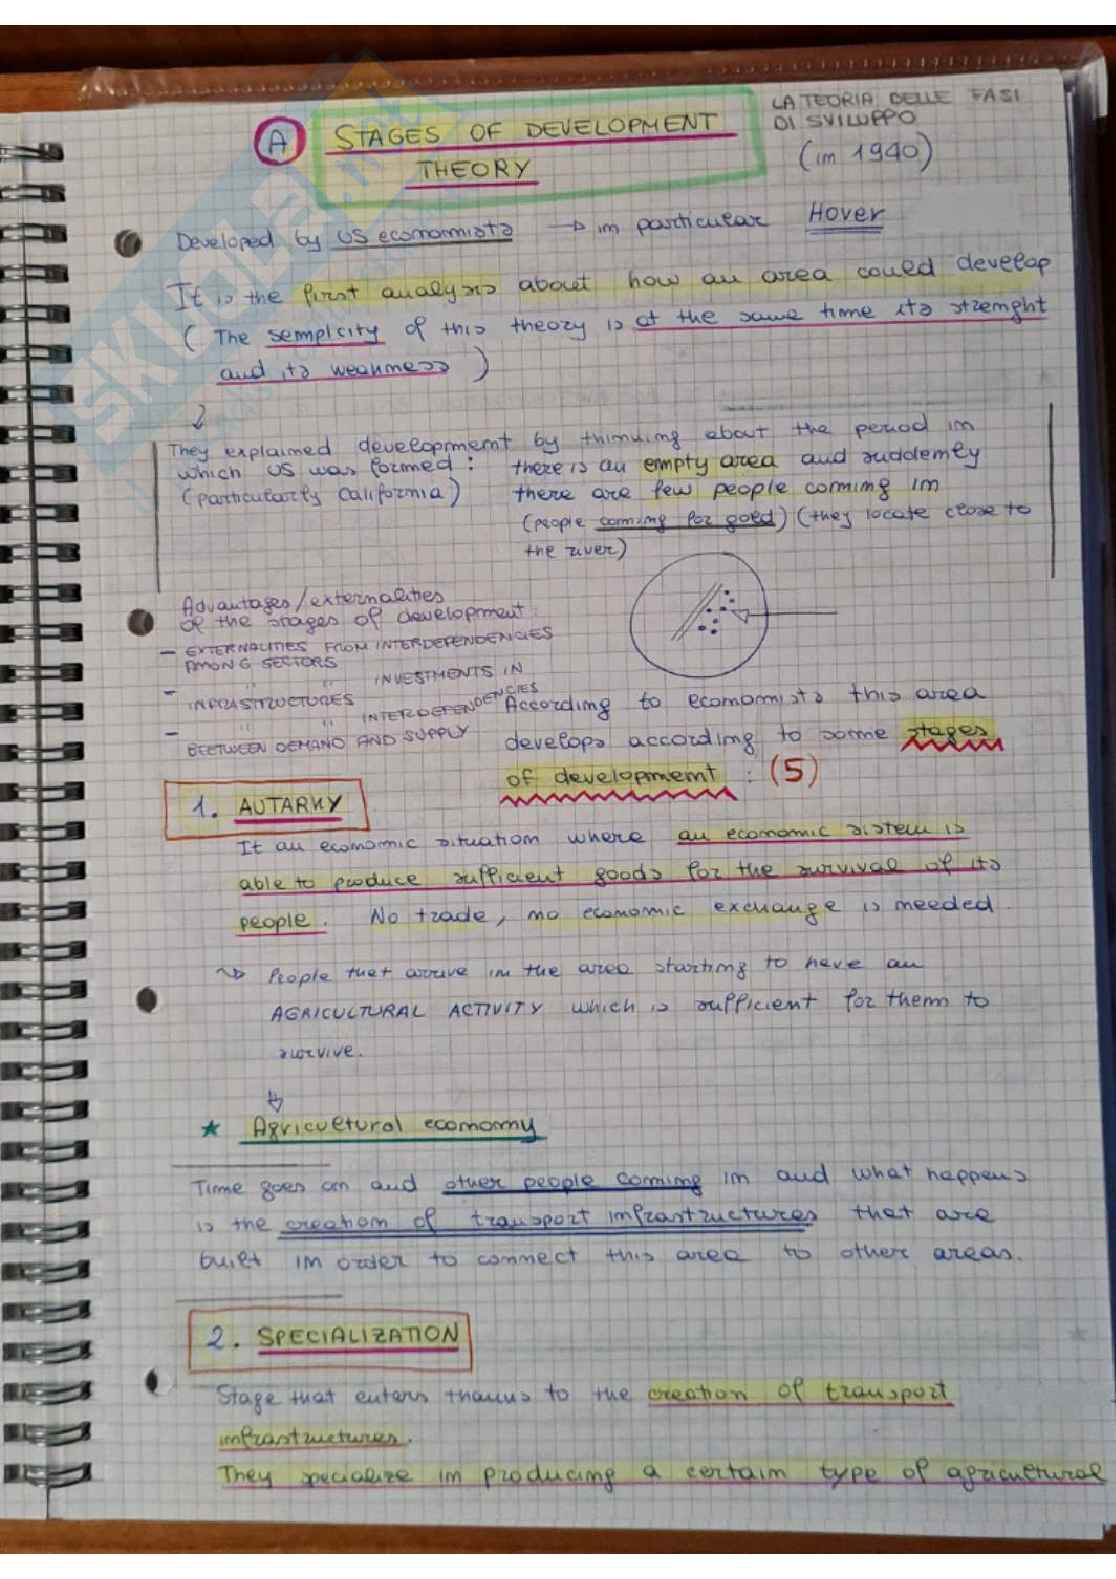 LA TEORIA DELLE FASI
DI SVILUPPO
(in 1940)
A STAGES OF DEVELOPMENT
THEORY
Developed by US economists → in particular Hover
It is the first analysis about how an area could develop
( The semplicity of this theory is at the same time its strenght
and its weakness )
They explained development by thinking about the period in
which US was formed : there is an empty area and suddenly
(particularly California) there are few people coming in
(people coming for gold) (they locate close to
the river)
Advantages/externalities
of the stages of development:
- EXTERNALITIES FROM INTERDEPENDENCIES
AMONG SECTORS
- " " INVESTMENTS IN
INFRASTRUCTURES
- " INTERDEPENDENCIES
BEETWEEN DEMAND AND SUPPLY
According to economists this area
develops according to some stages
of development : (5)
1. AUTARKY
It an economic situation where an economic sistem is
able to produce sufficient goods for the survival of its
people. No trade, no economic exchange is needed.
↝ People that arrive in the area starting to have an
AGRICULTURAL ACTIVITY which is sufficient for them to
survive.
★ Agricultural economy
Time goes on and other people coming in and what happens
is the creation of transport infrastructures that are
built in order to connect this area to other areas.
2. SPECIALIZATION
Stage that enters thanks to the creation of transport
infrastructures.
They specialize in producing a certain type of agricultural
SKUOLA.net